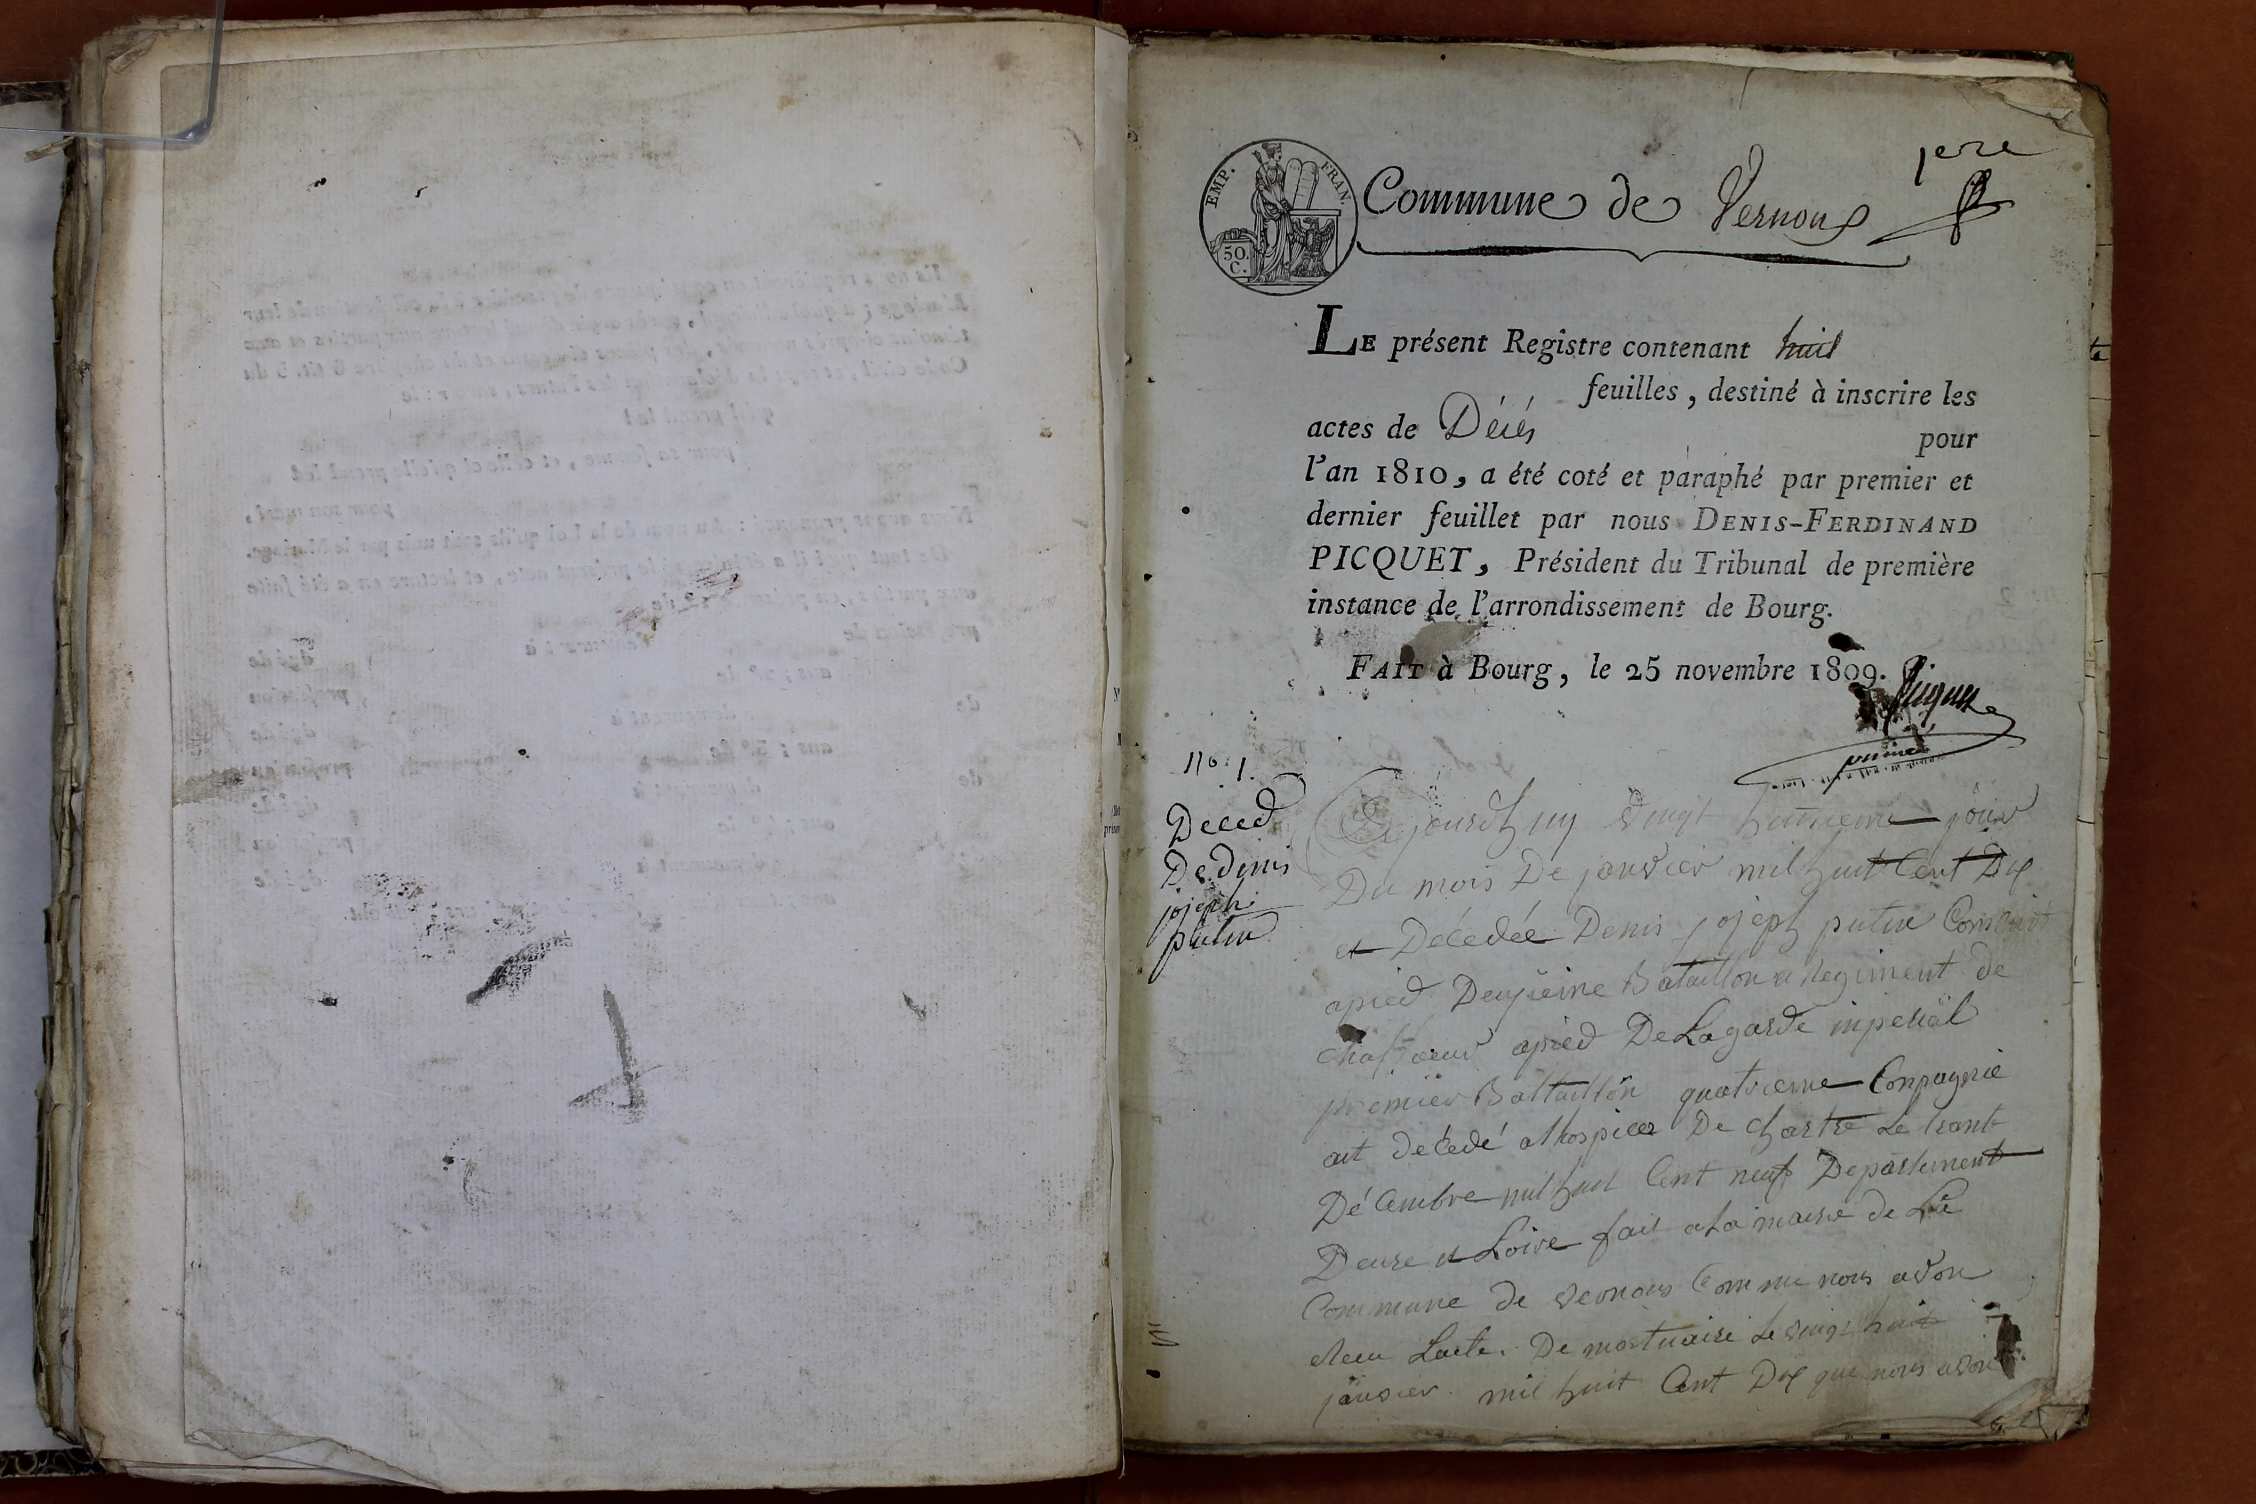 1ere
EMP. FRAN.
50.
C.
Commune de Vernoux
LE présent Registre contenant huit
feuilles, destiné à inscrire les
actes de Décés pour
l'an 1810, a été coté et paraphé par premier et
dernier feuillet par nous DENIS-FERDINAND
PICQUET, Président du Tribunal de première
instance de l'arrondissement de Bourg.
FAIT à Bourg, le 25 novembre 1809.
Picquet
No. 1.
Deced
De Denis
joseph
putin
Cejourdhuy vingt huitieme jour
Du mois De janvier mil huit Cent Dix
et Décedée Denis joseph putin Conscrit
apied Deuxieme Bataillon et Regiment de
chasseur apied De Lagarde inperial
premier Battaillon quatrieme Conpagnie
ait décedé alhospice De chartre Le trante
Décembre mil huit Cent neuf Departement
Deure et Loire fait a La mairie de La
Commune de vernoux Comme nous avon
Recu Lacte De mortuaire Le vingt huit
janvier mil huit Cent Dix que nous avon